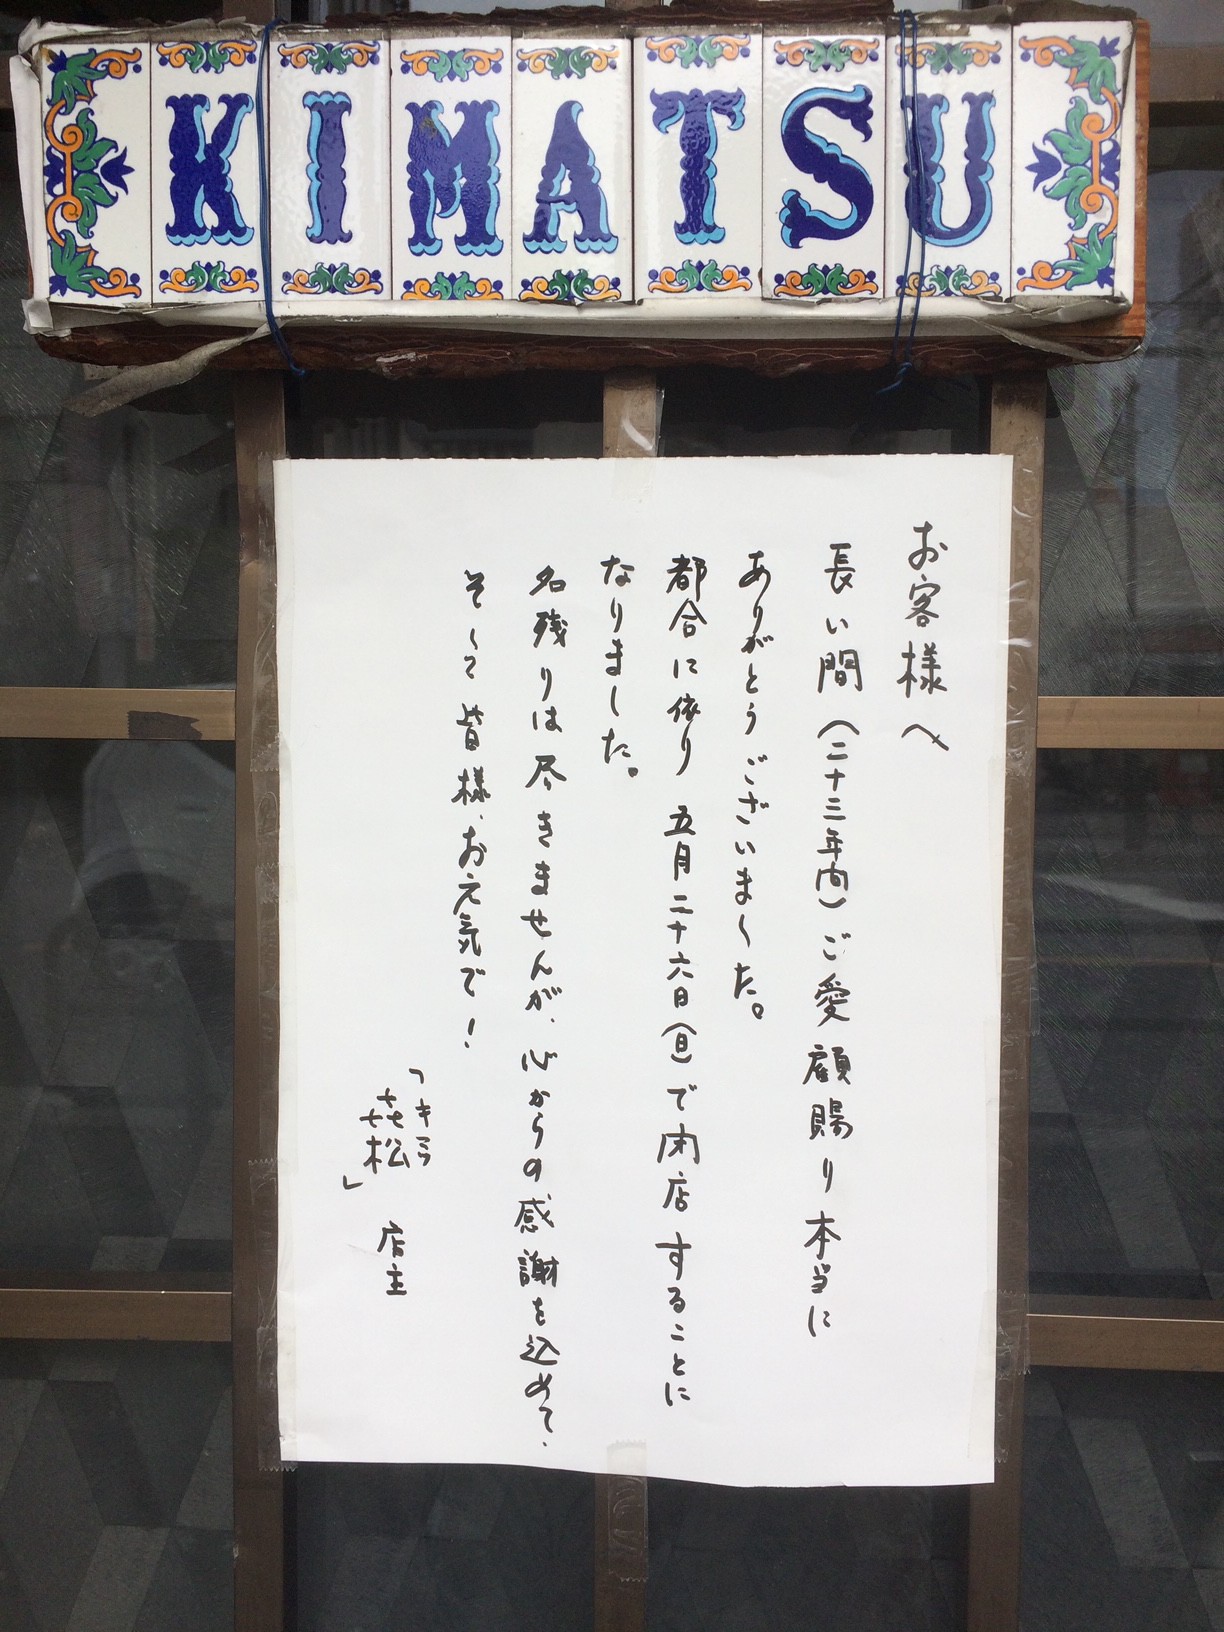 KIMATSU
お客様へ
長い間(二十三年間)ご愛顧賜り本当に
ありがとうございました。
都合に依り 五月二十六日(日)で閉店することに
なりました。
名残りは尽きませんが、心からの感謝を込めて、
そして皆様、お元気で!
キマツ
「㐂松」 店主